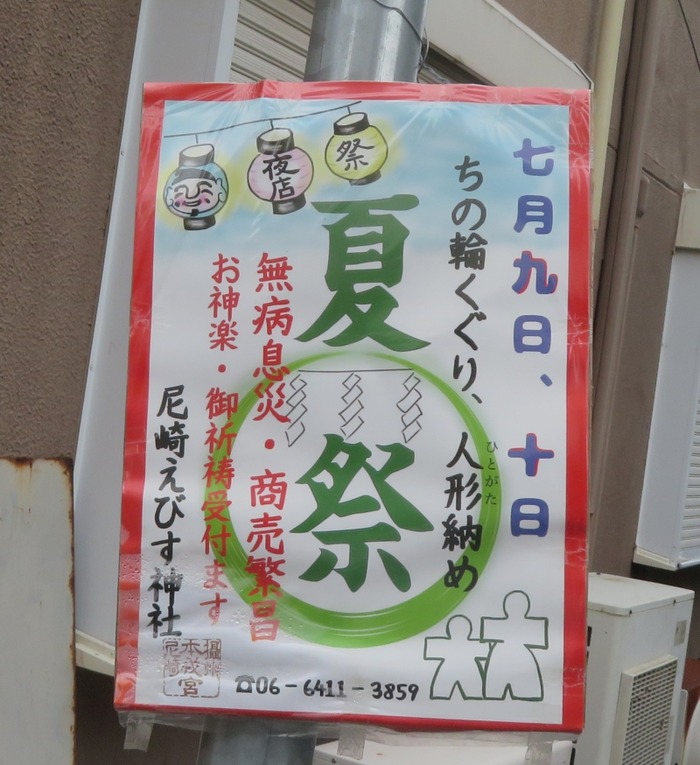 七月九日、十日
ちの輪くぐり、人形納め
ひとがた
夏祭
祭
夜店
無病息災・商売繁昌
お神楽・御祈祷受付ます
尼崎えびす神社
☎06-6411-3859